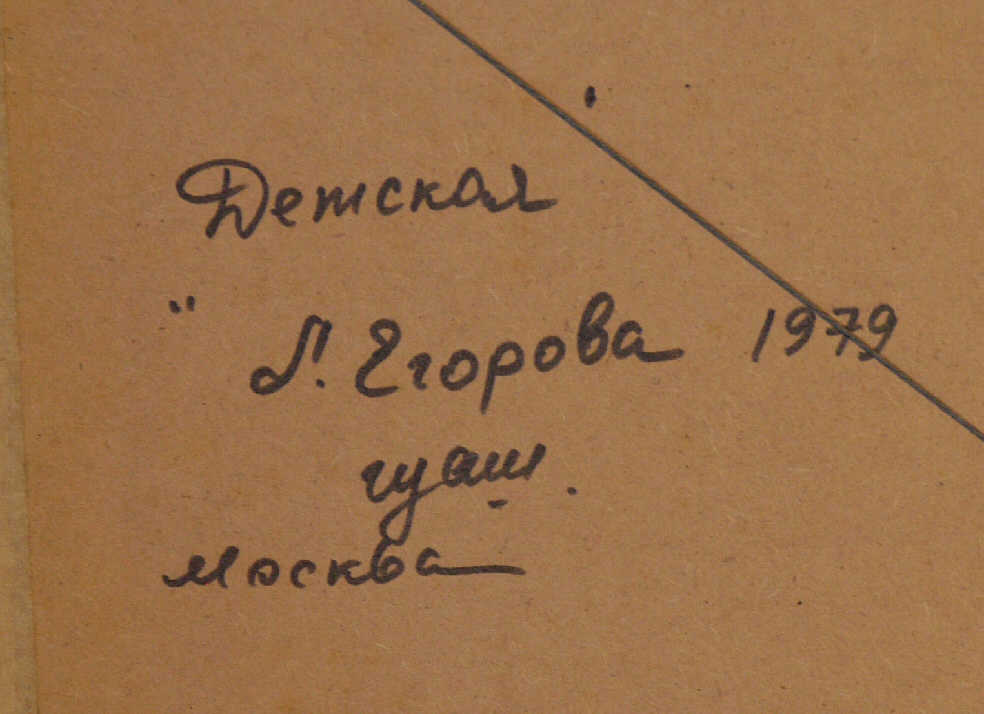 Детская
" Л. Егорова 1979
гуаш.
Москва